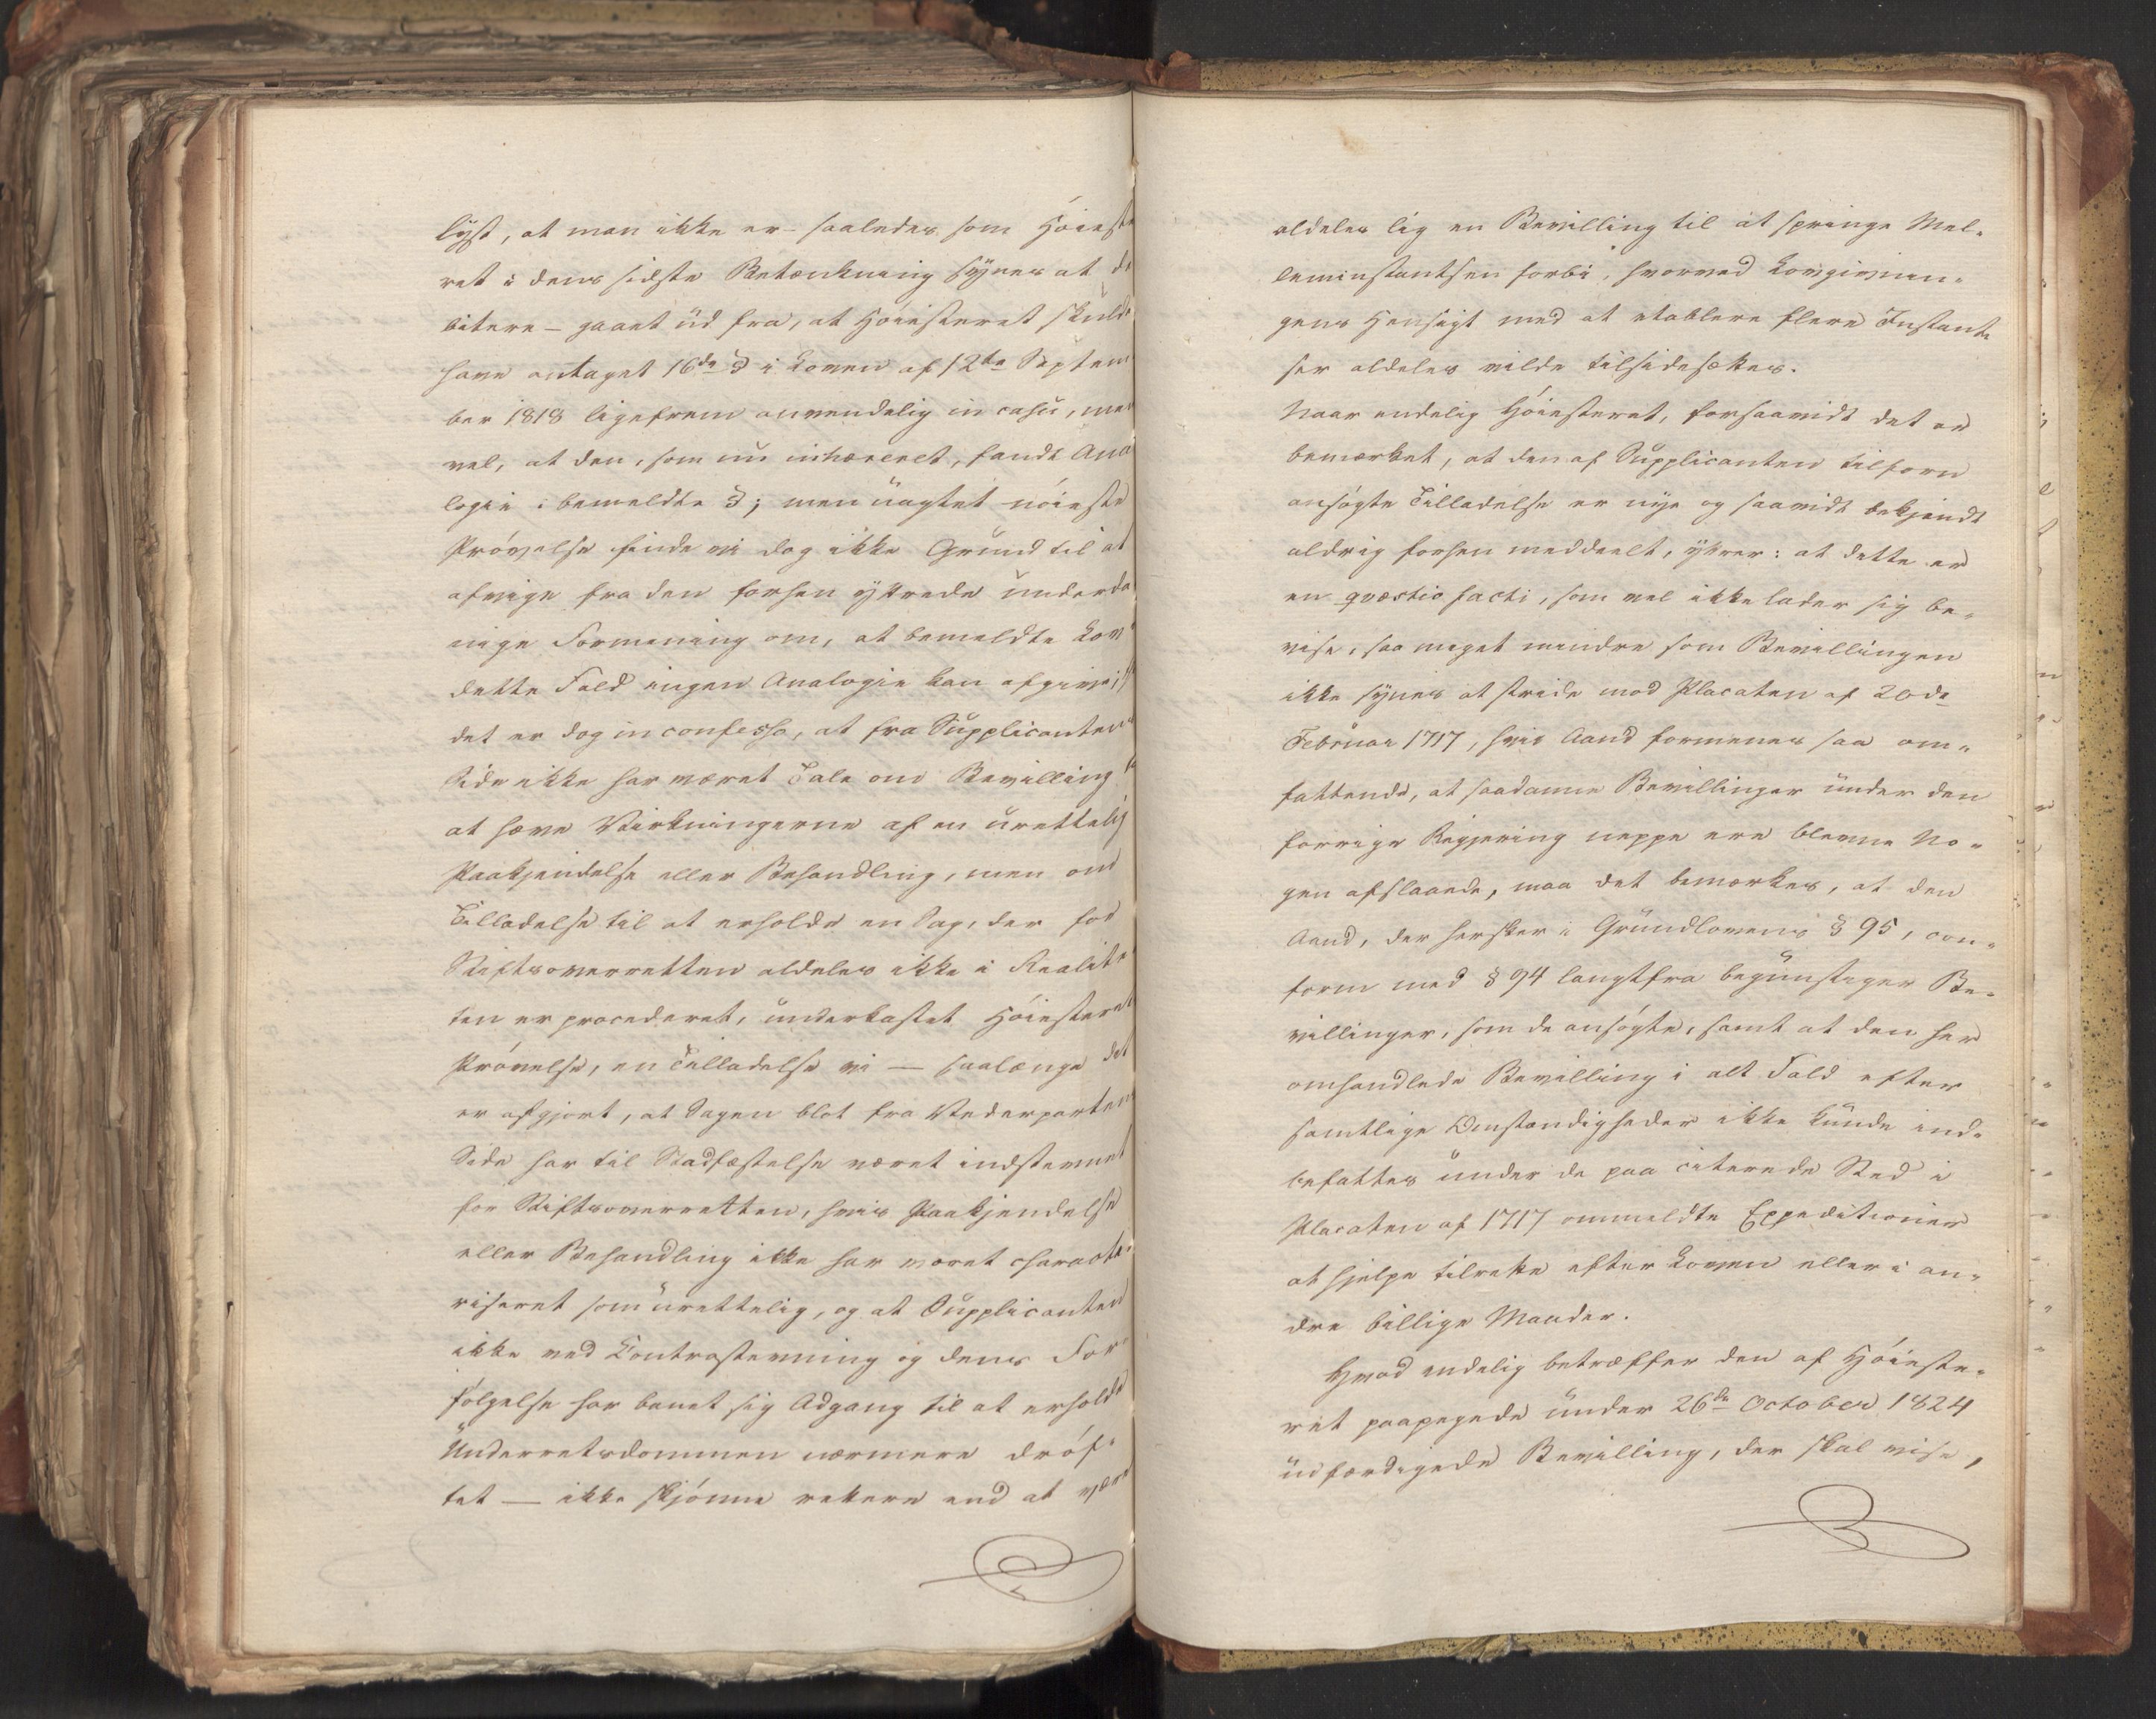 lyst, at man ikke er – saaledes som Høieste
ret i dens sidste Betænkning synes at de
bitere – gaaet ud fra, at Høiesteret skulde
have antaget 16de § i Loven af 12te Septem
ber 1818 ligefrem anvendelig in casu, men
vel, at den, som nu inhæreret, fandt Ana
logie i bemeldte §; men uagtet nøieste
Prøvelse finde vi dog ikke Grund til at
afvige fra den forhen yttrede underda
nige Formening om, at bemeldte Lov i
dette Fald ingen Analogie kan afgive;
det er dog in confesso, at fra Supplicantens
Side ikke har været Tale om Bevilling
at hæve Virkningerne af en urettelig
Paakjendelse eller Behandling, men om
Tilladelse til at erholde en Sag, der for
Stiftsoverretten aldeles ikke i Realite
ten er procederet, underkastet Høiesterets
Prøvelse, en Tilladelse vi — saalænge det
er afgjort, at Sagen blot fra Vederpartens
Side har til Stadfæstelse været indstevnet
for Stiftsoverretten, hvis Paakjendelse
eller Behandling ikke har været characte-
riseret som urettelig, og at Supplicanten
ikke ved Contrastevning og dens For-
følgelse har banet sig Adgang til at erholde
Underretsdommen nærmere drøf-
tet — ikke skjønne rettere end at være
aldeles lig en Bevilling til at springe Mel-
leminstantsen forbi, hvorved Lovgivnin-
gens Hensigt med at etablere flere Instant-
ser aldeles vilde tilsidesættes.
Naar endelig Høiesteret, forsaavidt det er
bemærket, at den af Supplicanten tilforn
ansøgte Tilladelse er nye og saavidt bekjendt
aldrig forhen meddeelt, yttrer: at dette er
en qvæstio facti, som vel ikke lader sig be-
vise, saa meget mindre som Bevillingen
ikke synes at stride mod Placaten af 20de
Februar 1717, hvis Aand formenes saa om-
fattende, at saadanne Bevillinger under den
forrige Regjering neppe ere blevne No-
gen afslaaede, maa det bemærkes, at den
Aand, der hersker i Grundlovens § 95, con-
form med § 94 langtfra begunstiger Be-
villinger, som de ansøgte, samt at den her
omhandlede Bevilling i alt Fald efter
samtlige Omstændigheder ikke kunde ind-
befattes under de paa citerede Sted i
Placaten af 1717 ommeldte Expeditioner
at hjelpe tilrette efter Loven eller i an-
dre billige Maader.
Hvad endelig betræffer den af Høieste-
ret paapegede under 26de October 1824
udfærdigede Bevilling, der skal vise,